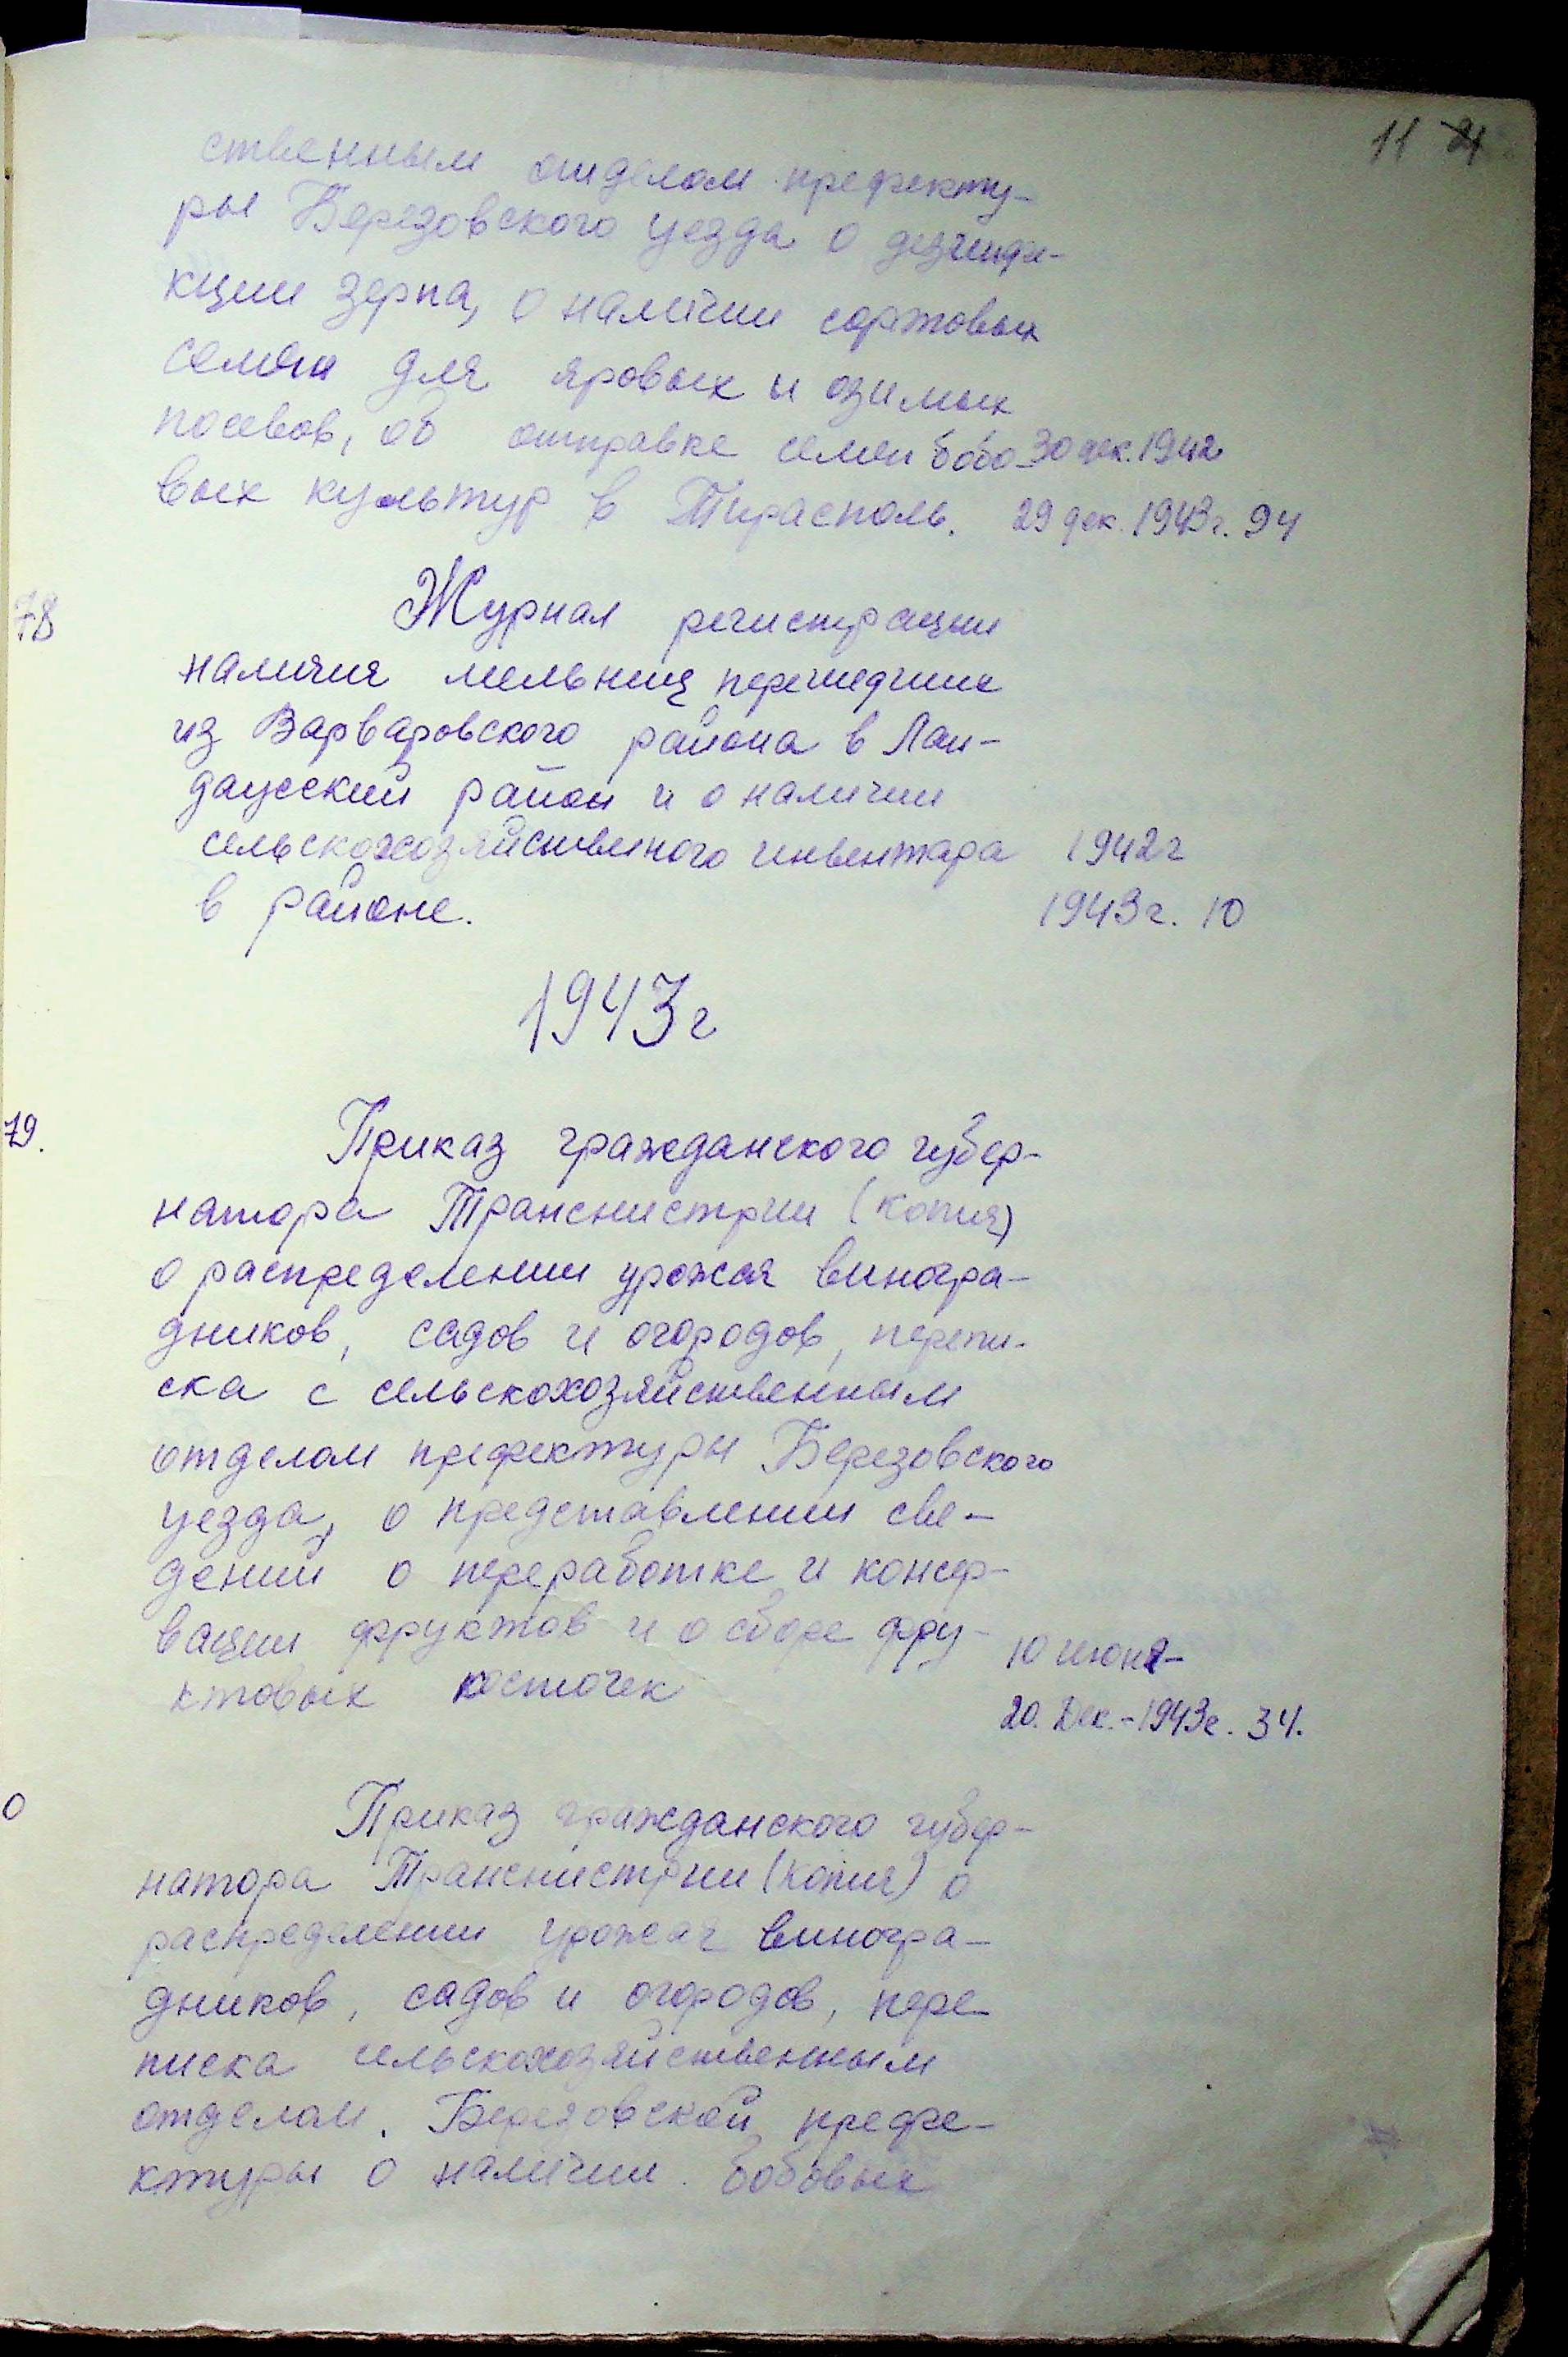 11
ственным отделом префекту-
ры Березовского уезда о дезинфе-
кции зерна, о наличии сортовых
семян для яровых и озимых
посевов, об отправке семян бобо- 30 дек. 1942
вых культур в Тирасполь. 29 дек. 1943г. 94
78 Журнал регистрации
наличия мельниц перешедших
из Варваровского района в Лан-
дауский район и о наличии
сельскохозяйственного инвентаря 1942г
в районе. 1943г. 10
1943г
79. Приказ гражданского губер-
натора Транснистрии (копия)
о распределении урожая виногра-
дников, садов и огородов, перепи-
ска с сельскохозяйственным
отделом префектуры Березовского
уезда, о представлении све-
дений о переработке и консер-
вации фруктов и о сборе фру- 10 июня-
ктовых косточек 20. Дек.-1943г. 34.
0 Приказ гражданского губер-
натора Транснистрии (копия) о
распределении урожая виногра-
дников, садов и огородов, пере-
писка сельскохозяйственным
отделом. Березовской префе-
ктуры о наличии бобовых